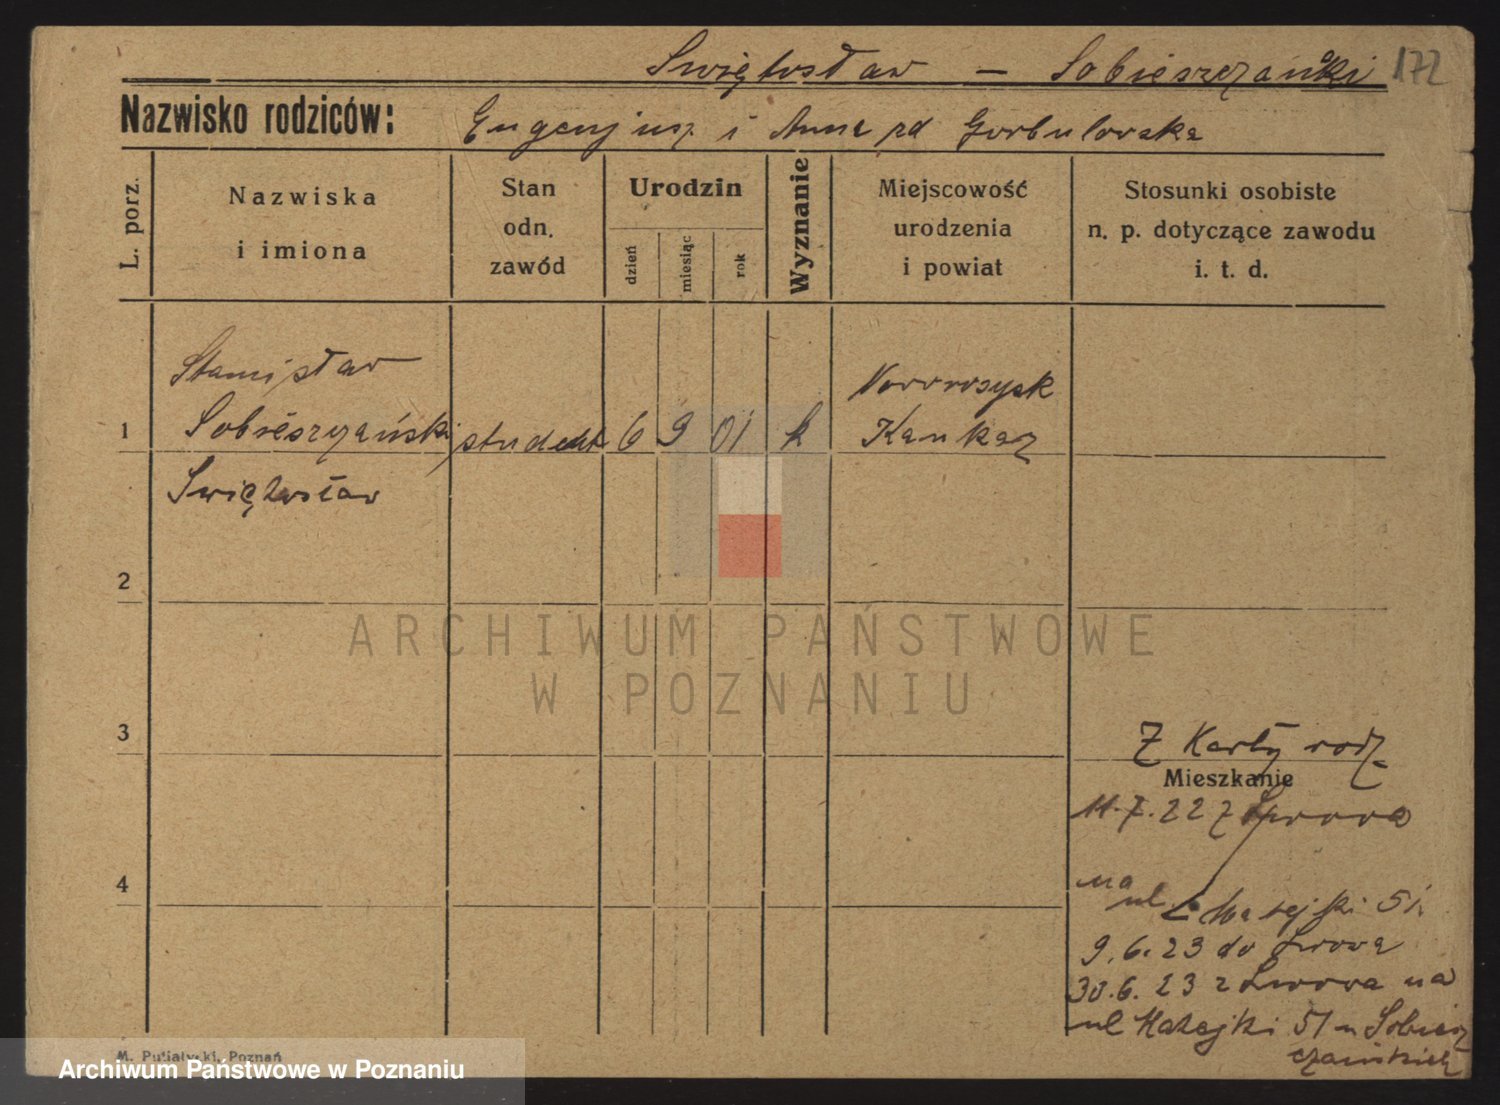 Świętosław - Sobieszczański 172
Nazwisko rodziców: Eugenjusz i Anna zd Gorbulowska
L. porz.
Nazwiska
i imiona
Stan
odn.
zawód
Urodzin
dzień
miesiąc
rok
Wyznanie
Miejscowość
urodzenia
i powiat
Stosunki osobiste
n. p. dotyczące zawodu
i. t. d.
Stanisław
1 Sobieszczański student 6 9 01 k Noworosysk Kaukaz
Świętosław
2
3
4
Z Karty rodz
Mieszkanie
11.7.22 z Lwowa
na ul Matejki 51
9.6.23 do Lwowa
30.6.23 z Lwowa na
ul Matejki 51 u Sobiesz
czańskich
M. Putiatycki, Poznań
ARCHIWUM PAŃSTWOWE
W POZNANIU
Archiwum Państwowe w Poznaniu